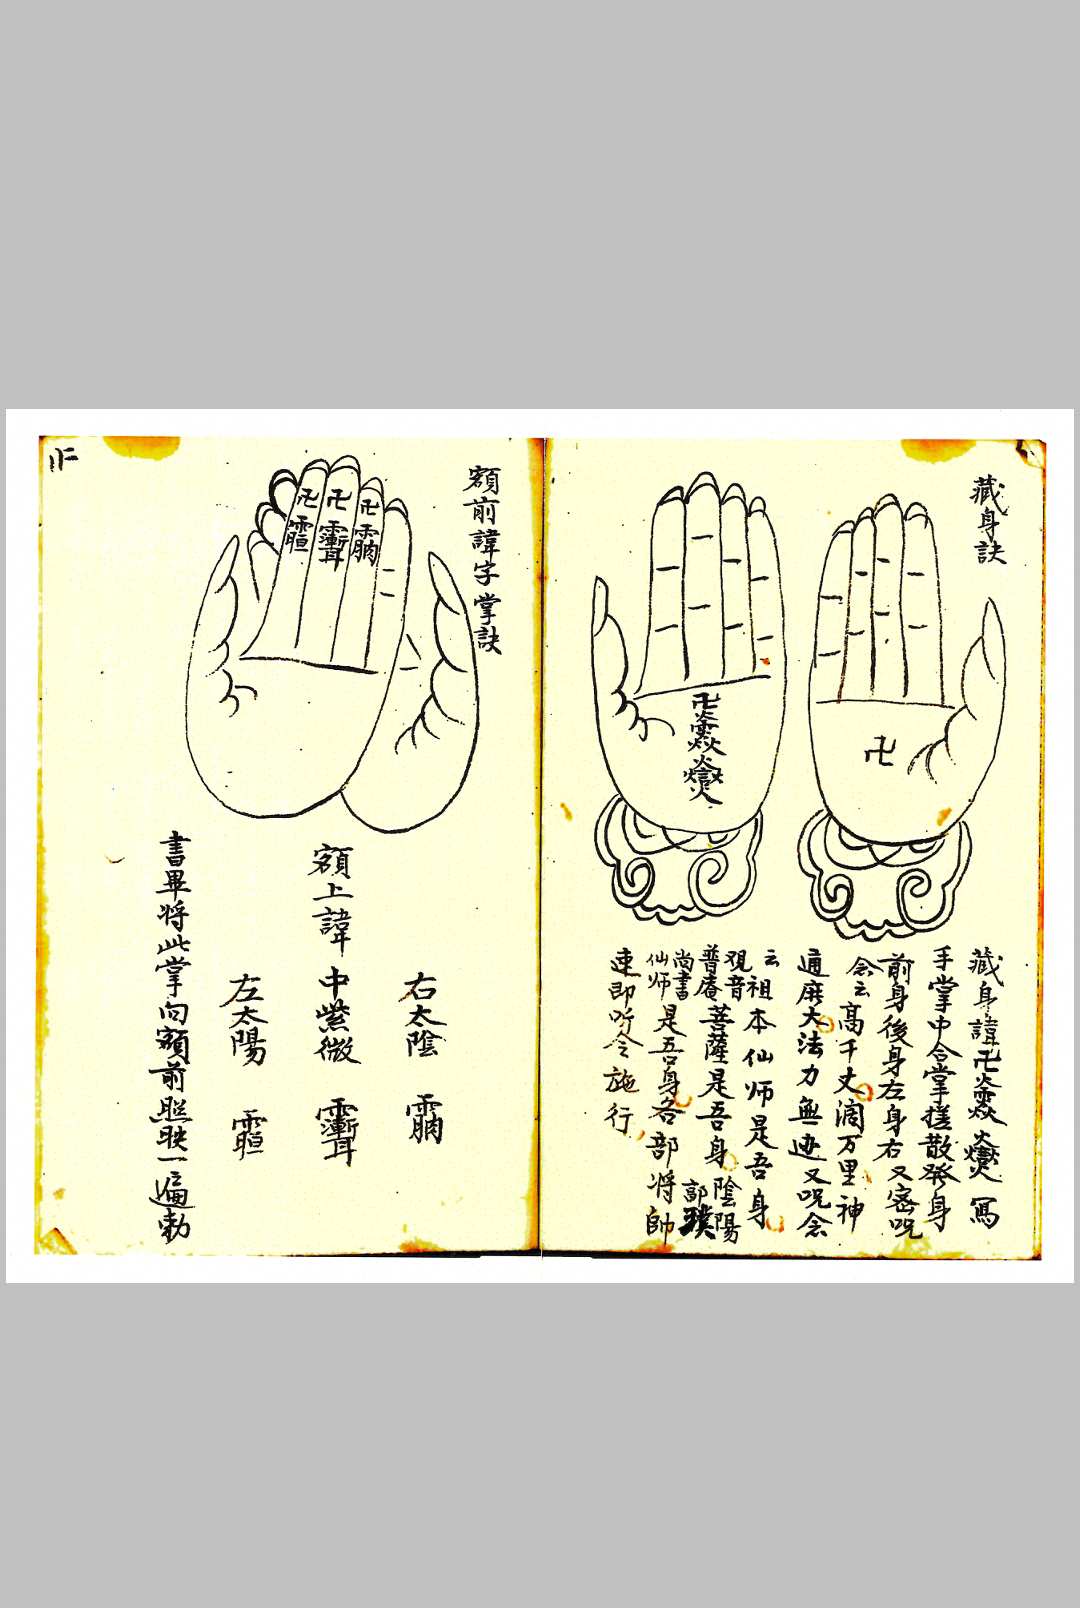 藏身訣
卍
卍
藏身諱卍
寫
手掌中合掌搓散發身
前身後身左身右又密咒
念云高千丈濶万里神
通廣大法力無边又咒念
云祖本仙师是吾身
观音
普庵菩薩是吾身陰陽
尚書
郭璞
仙师是吾身各部将帥
速即听令施行
額前諱字掌訣
卍 卍 卍
右太陰
額上諱中紫微
左太陽
書畢将此掌向額前照映一遍勅